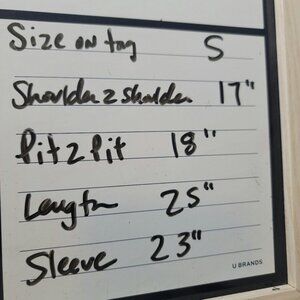 Size on tag S
Shoulder 2 Shoulder 17"
Pit 2 Pit 18"
Length 25"
Sleeve 23"
U BRANDS